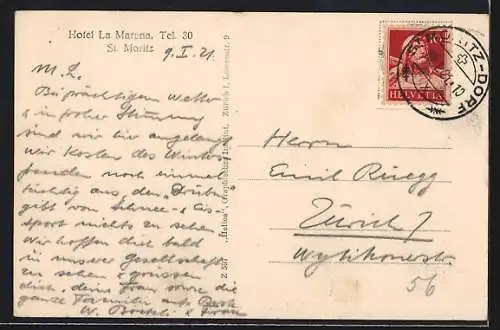 Hotel La Marena. Tel. 30
St. Moritz
9. I. 21.
M. L.
Bei prächtigem Wetter
& in froher Stimmung
sind wir hier angelangt
wir kosten des Winters
Freuden noch immer
tüchtig aus, den
gibt von Schnee- & Eis-
sport nichts zu sehen
Wir hoffen dich bald
in unserer Gesellschaft
zu sehen & grüssen
dich, deine Frau sowie die
ganze Familie aufs Beste
W. & Frau
"Helios", Graphisches Institut, Zürich 1, Löwenstr. 9
Z 597
HELVETIA
10
ST. MORITZ-DORF
Herrn
Emil Rüegg
Zürich 7
Wytikonerstr.
56